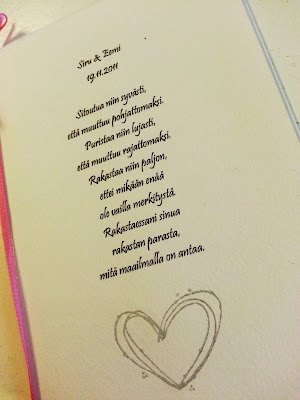 Siru & Eemi
19.11.2011
Sitoutua niin syvästi,
että muuttuu pohjattomaksi.
Puristaa niin lujasti,
että muuttuu rajattomaksi.
Rakastaa niin paljon,
ettei mikään enää
ole vailla merkitystä.
Rakastaessani sinua
rakastan parasta,
mitä maailmalla on antaa.